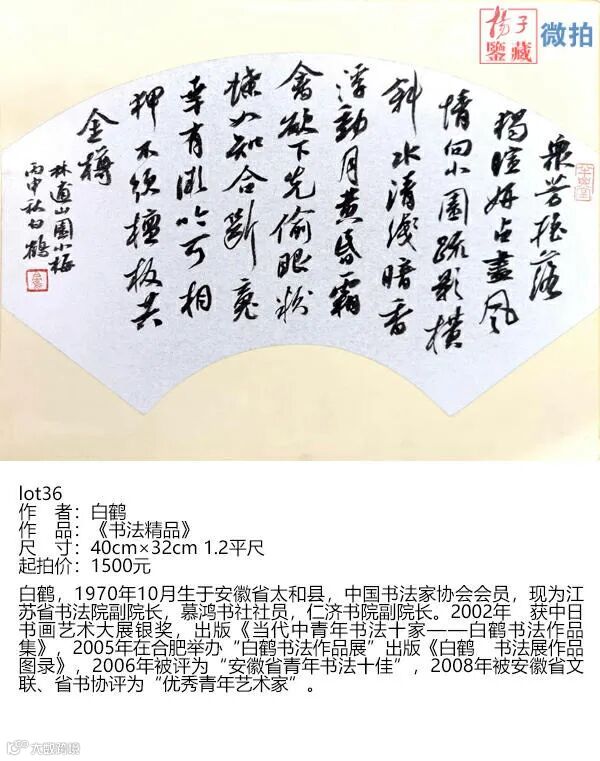 揚子
鑒藏
微拍
衆芳摇落
獨暄妍占盡風
情向小園疏影横
斜水清淺暗香
浮動月黄昏霜
禽欲下先偷眼粉
蝶如知合斷魂
幸有微吟可相
狎不須檀板共
金樽
林逋山園小梅
丙申秋白鶴
lot36
作　者：白鹤
作　品：《书法精品》
尺　寸：40cm×32cm 1.2平尺
起拍价：1500元
白鹤，1970年10月生于安徽省太和县，中国书法家协会会员，现为江
苏省书法院副院长，慕鸿书社社员，仁济书院副院长。2002年　获中日
书画艺术大展银奖，出版《当代中青年书法十家——白鹤书法作品
集》，2005年在合肥举办“白鹤书法作品展”出版《白鹤　书法展作品
图录》，2006年被评为“安徽省青年书法十佳”，2008年被安徽省文
联、省书协评为“优秀青年艺术家”。